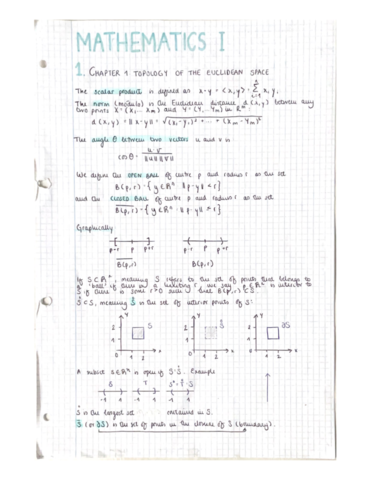 MATHEMATICS I
1. CHAPTER 1 TOPOLOGY OF THE EUCLIDEAN SPACE
The scalar product is defined as x·y = <x,y> = Σ xi yi
The norm (module) is the Euclidean distance d(x,y) between any
two points x=(x1...xm) and y=(y1...ym) in Rⁿ
d(x,y) = ||x-y|| = √(x1-y1)²+...+(xm-ym)²
The angle θ between two vectors u and v is
cos θ = u·v / ||u|| ||v||
We define the OPEN BALL of centre p and radius r as the set
B(p,r) = {y∈Rⁿ : ||p-y|| < r}
and the CLOSED BALL of centre p and radius r as the set
B(p,r) = {y∈Rⁿ : ||p-y|| ≤ r}
Graphically
p-r p p+r p-r p p+r
B(p,r) B(p,r)
S⊂Rⁿ, meaning S refers to the set of points that belongs to
a "ball" if there is a we say p∈Rⁿ is interior to
S if there is some r>0 such that B(p,r)⊂S
S⊂S, meaning S is the set of interior points of S:
y y y
2 S 2 S 2 ∂S
1 1 1
1 2 x 1 2 x 1 2 x
A subset S∈Rⁿ is open if S=S. Example
S is the largest set contained in S.
S (or ∂S) is the set of points in the closure of S (boundary).